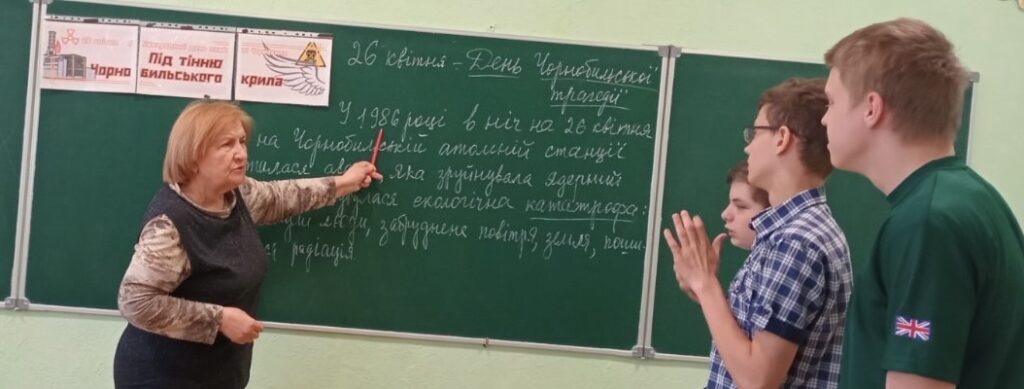 Чорно
Під тінню
бильського
крила
26 квітня – День Чорнобильської
трагедії
У 1986 році в ніч на 26 квітня
на Чорнобильській атомній станції
яка зруйнувала ядерний
екологічна катастрофа:
люди, забруднена повітря, земля, поши-
радіація